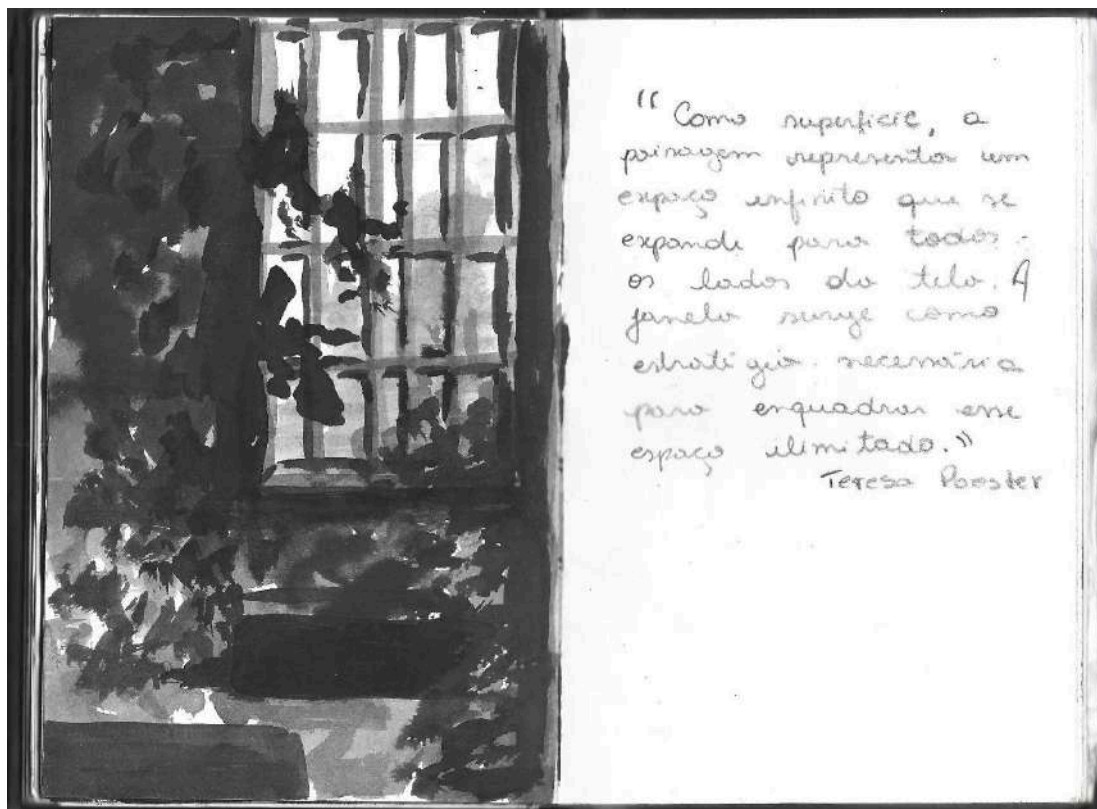 “Como superfície, a
paisagem representa um
espaço infinito que se
expande para todos
os lados da tela. A
janela surge como
estratégia necessária
para enquadrar esse
espaço ilimitado.”
Teresa Poester